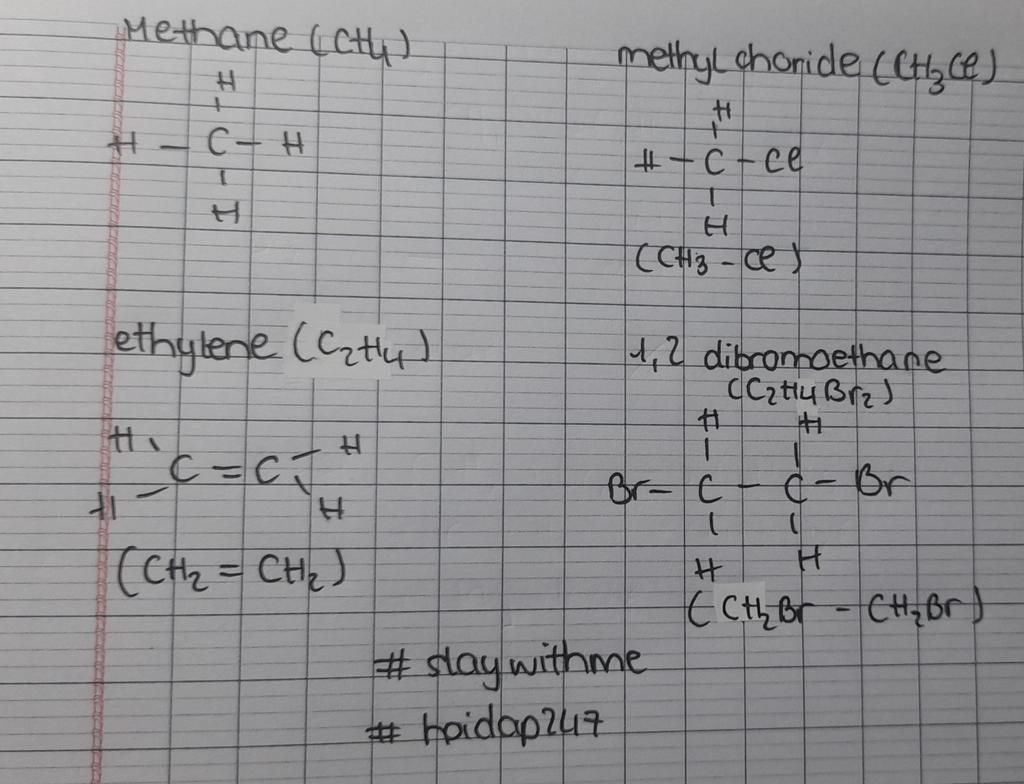 Methane (CH4)
H
H – C – H
H
methyl choride (CH3Cl)
H
H – C – Cl
H
(CH3 – Cl)
ethylene (C2H4)
H H
C = C
H H
(CH2 = CH2)
1,2 dibromoethane
(C2H4Br2)
H H
Br – C – C – Br
H H
(CH2Br – CH2Br)
# staywithme